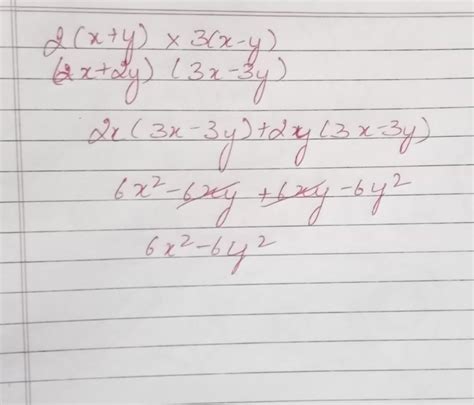 2(x+y) × 3(x-y)
(2x+2y) (3x-3y)
2x(3x-3y)+2xy(3x-3y)
6x²-6xy +6xy-6y²
6x²-6y²